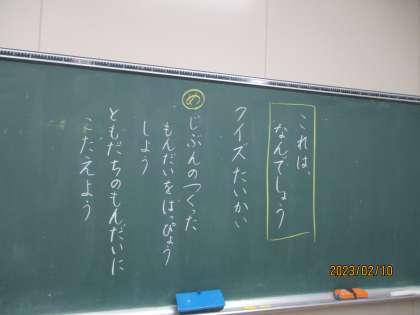 これは、
なんでしょう
クイズたいかい
め
じぶんのつくった
もんだいをはっぴょう
しよう
ともだちのもんだいに
こたえよう
2023/02/10